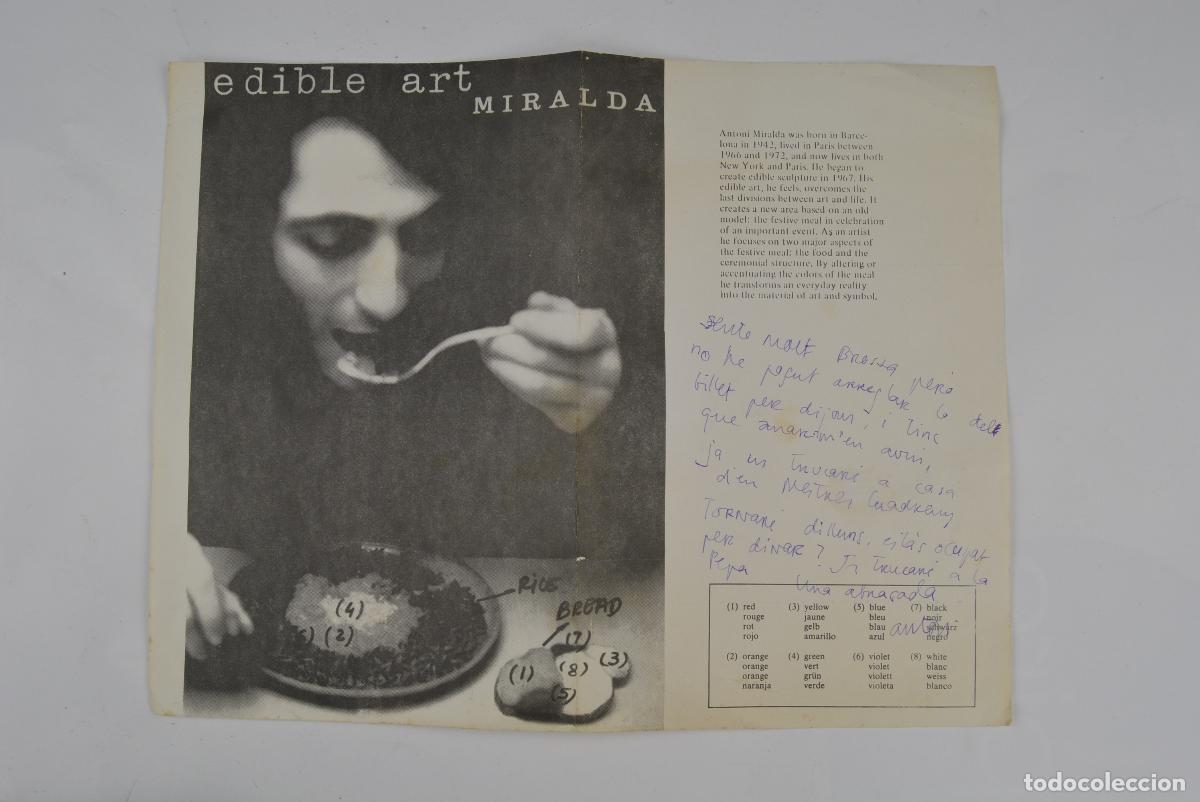 edible art
MIRALDA
Antoni Miralda was born in Barce-
lona in 1942, lived in Paris between
1966 and 1972, and now lives in both
New York and Paris. He began to
create edible sculpture in 1967. His
edible art, he feels, overcomes the
last divisions between art and life. It
creates a new area based on an old
model: the festive meal in celebration
of an important event. As an artist
he focuses on two major aspects of
the festive meal: the food and the
ceremonial structure. By altering or
accentuating the colors of the meal
he transforms an everyday reality
into the material of art and symbol.
molt Brossa però
no he pogut arreglar lo del
billet per dijous, i tinc
que anarsem'en avui,
ja us trucaré a casa
d'en Mestres Quadreny
Tornaré dilluns, estàs ocupat
per dinar? Ja trucaré a la
Pepa Una abraçada
antoni
RICE
BREAD
(4)
(2)
(7)
(1)
(8)
(3)
(5)
(1) red (3) yellow (5) blue (7) black
rouge jaune bleu noir
rot gelb blau schwarz
rojo amarillo azul negro
(2) orange (4) green (6) violet (8) white
orange vert violet blanc
orange grün violett weiss
naranja verde violeta blanco
todocoleccion